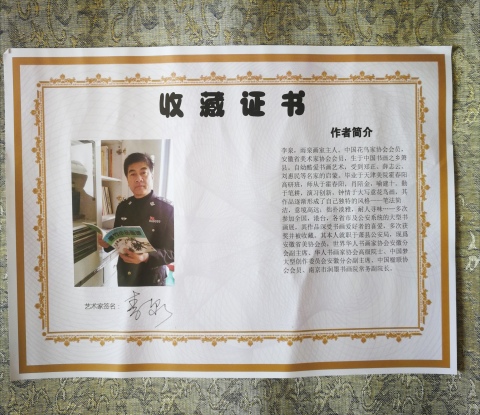 收藏证书
作者简介
李泉，雨荣画家主人，中国花鸟家协会会员，
安徽省美术家协会会员，生于中国书画之乡萧
县，自幼酷爱书画艺术，受到郑正、薛志云、
刘惠民等名家的启蒙，毕业于天津美院霍春阳
高研班，师从于霍春阳，
于笔耕，演习创新，钟情于大写意花鸟画，其
作品逐渐形成了自己独特的风格——笔法简
洁，意境高远，恬静淡雅，耐人寻味——多次
参加全国，港台，各省市及公安系统的大型书
画展，其作品深受书画爱好者的喜爱，多次获
奖并被收藏，其本人就职于萧县公安局，现为
安徽省美协会员，世界华人书画家协会安徽分
会副主席，华人书画家协会高级院士，中国梦
大型创作委员会安徽分会副主席，中国楹联协
会会员，南京市润墨书画院常务副院长。
艺术家签名：